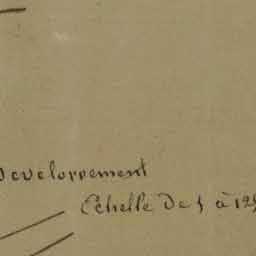 Developpement
Echelle de 1 à 125